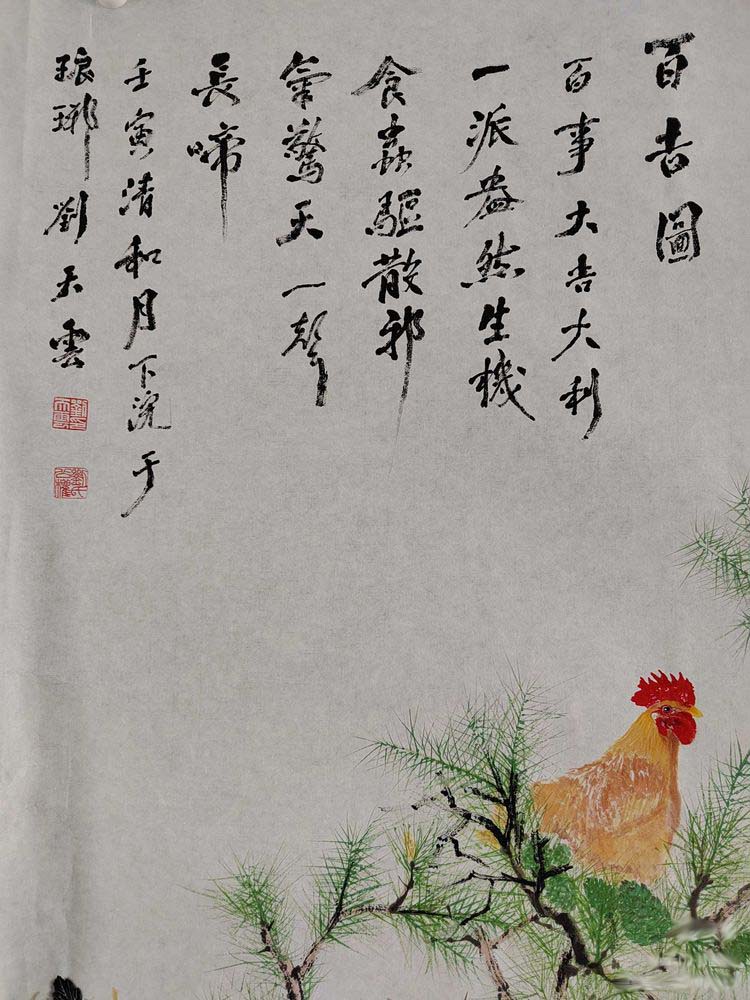 百吉圖
百事大吉大利
一派盎然生機
食蟲驅散邪
氣驚天一聲
長啼
壬寅清和月下浣于
琅琊劉天雲